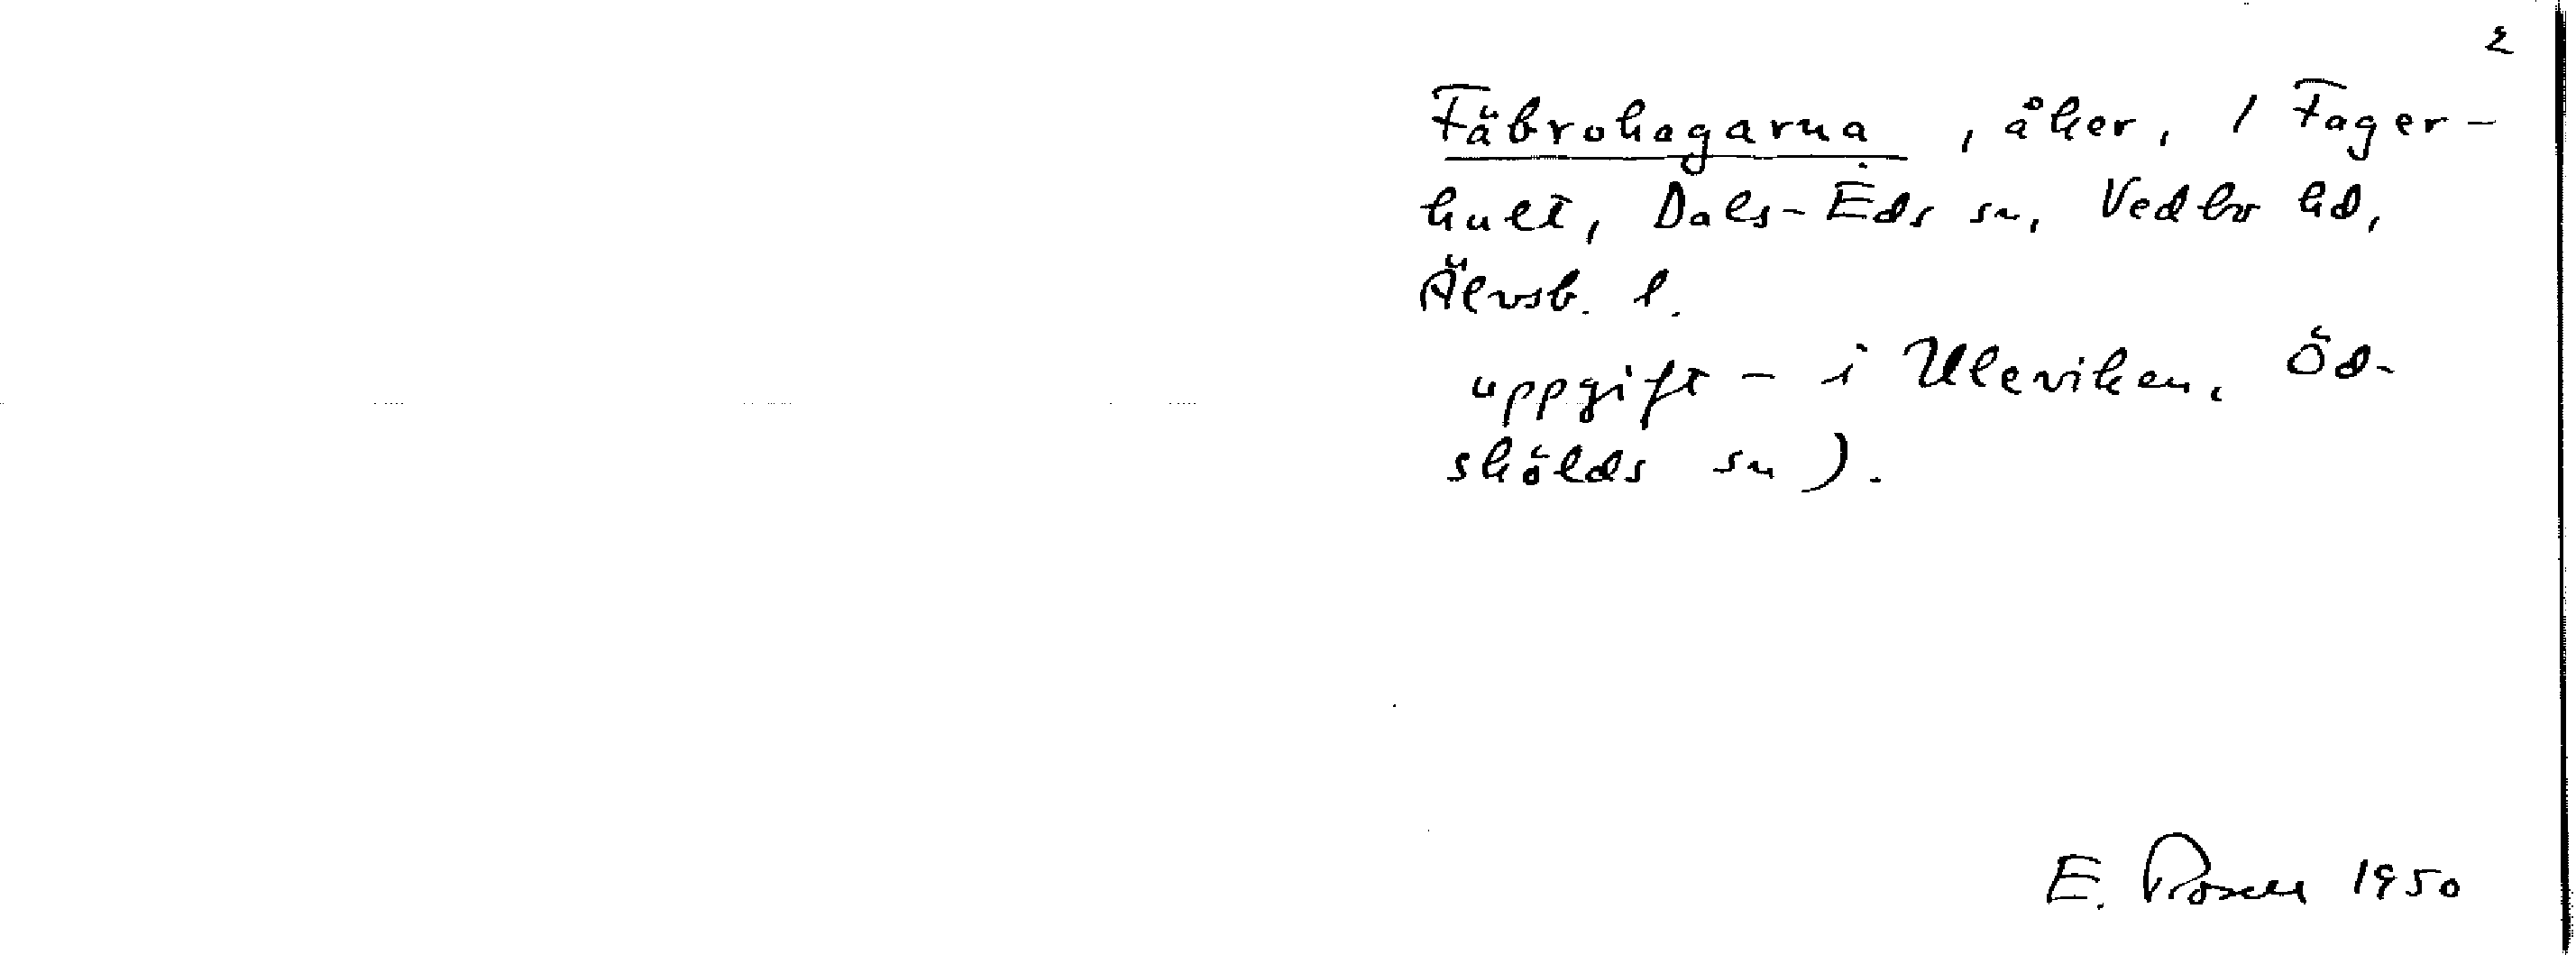 2
Fäbrohagarna, åker, 1 Fager-
hult, Dals-Eds sn, Vedbo hd,
Älvsb. l.
uppgift - i Uleviken, Öd-
skölds sn).
E. Rosell 1950